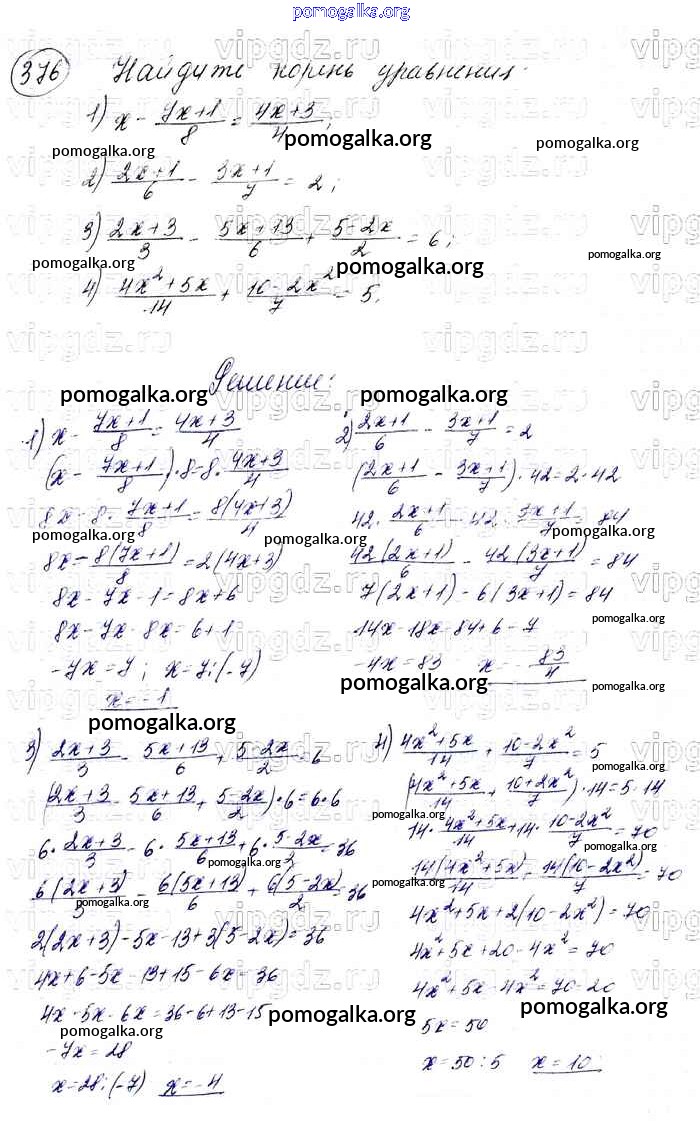 pomogalka.org
376 Найдите корень уравнения:
1) x - (7x+1)/8 = (4x+3)/4;
2) (2x+1)/6 - (3x+1)/7 = 2;
3) (2x+3)/3 - (5x+13)/6 + (5-2x)/2 = 6;
4) (4x²+5x)/14 + (10-2x²)/7 = 5.
Решение:
1) x - (7x+1)/8 = (4x+3)/4
(x - (7x+1)/8)·8 = 8·(4x+3)/4
8x - 8·(7x+1)/8 = 8(4x+3)/4
8x - 8(7x+1)/8 = 2(4x+3)
8x - 7x - 1 = 8x + 6
8x - 7x - 8x = 6 + 1
-7x = 7; x = 7:(-7)
x = -1
2) (2x+1)/6 - (3x+1)/7 = 2
((2x+1)/6 - (3x+1)/7)·42 = 2·42
42·(2x+1)/6 - 42·(3x+1)/7 = 84
42(2x+1)/6 - 42(3x+1)/7 = 84
7(2x+1) - 6(3x+1) = 84
14x - 18x = 84 + 6 - 7
-4x = 83 x = -83/4
3) (2x+3)/3 - (5x+13)/6 + (5-2x)/2 = 6
((2x+3)/3 - (5x+13)/6 + (5-2x)/2)·6 = 6·6
6·(2x+3)/3 - 6·(5x+13)/6 + 6·(5-2x)/2 = 36
6(2x+3)/3 - 6(5x+13)/6 + 6(5-2x)/2 = 36
2(2x+3) - 5x - 13 + 3(5-2x) = 36
4x + 6 - 5x - 13 + 15 - 6x = 36
4x - 5x - 6x = 36 - 6 + 13 - 15
-7x = 28
x = 28:(-7) x = -4
4) (4x²+5x)/14 + (10-2x²)/7 = 5
((4x²+5x)/14 + (10+2x²)/7)·14 = 5·14
14·(4x²+5x)/14 + 14·(10-2x²)/7 = 70
14(4x²+5x)/14 - 14(10-2x²)/7 = 70
4x² + 5x + 2(10-2x²) = 70
4x² + 5x + 20 - 4x² = 70
4x² + 5x - 4x² = 70 - 20
5x = 50
x = 50:5 x = 10